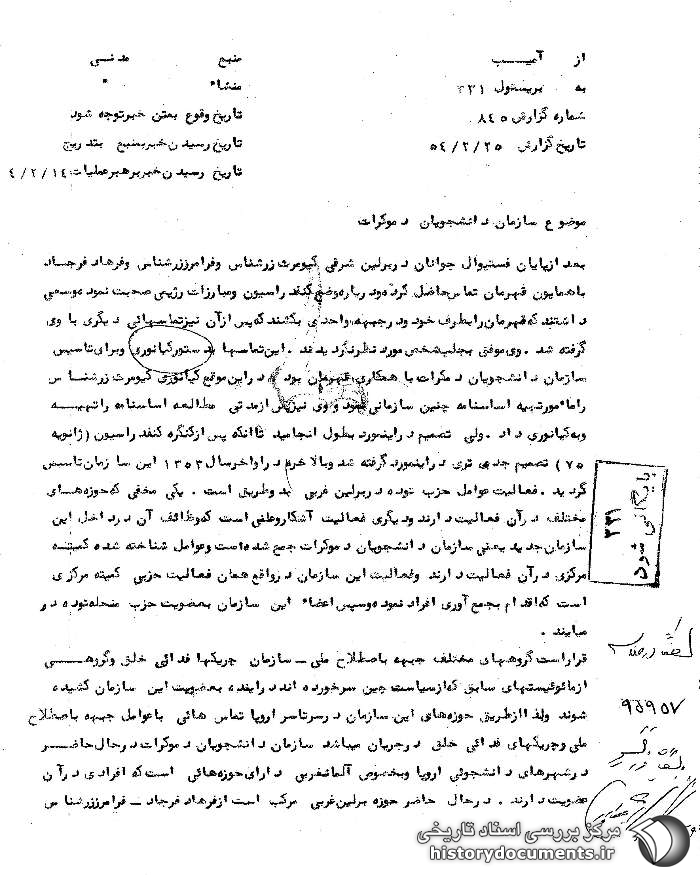 از آمیب
منبع مدنی
به پریستول ۳۳۱
منشاء "
شماره گزارش ۸۴۵
تاریخ وقوع بمتن خبرتوجه شود
تاریخ گزارش ۵۴/۲/۲۵
تاریخ رسیدن خبربمنبع بتدریج
تاریخ رسیدن خبربرهبرعملیات ۴/۲/۱۴
موضوع سازمان دانشجویان دموکرات
بعد ازپایان فستیوال جوانان دربرلین شرقی کیومرث زرشناس وفرامرززرشناس وفرهاد فرجاد
باهمایون قهرمان تماس حاصل کرده ودرباره وضع کنفدراسیون ومبارزات رژیمی صحبت نموده وسعی
داشتند که قهرمان رابطرف خود ودرجبهه واحدی بکشند که پس ازآن نیزتماسهائی دیگری با وی
گرفته شد . وی موفق بجلب شخص مورد نظرنگردیدند . این تماسها بدستورکیانوری وبرای تاسیس
سازمان دانشجویان دمکرات با همکاری قهرمان بود که دراین موقع کیانوری کیومرث زرشناس
راماءمورتهیه اساسنامه چنین سازمانی نمود و وی نیزپس ازمدتی مطالعه اساسنامه راتهیه
وبه کیانوری داد . ولی تصمیم دراینمورد بطول انجامید تاانکه پس ازکنگره کنفدراسیون (ژانویه
۷۵) تصمیم جدی تری دراینمورد گرفته شد وبالاخره درا واخرسال ۱۳۵۳ این سازمان تاسیس
گردید . فعالیت عوامل حزب توده دربرلین غربی بدوطریق است . یکی مخفی که حوزه های
مختلف درآن فعالیت دارند ودیگری فعالیت آشکاروعلنی است که وظائف آن درداخل این
سازمان جدید یعنی سازمان دانشجویان دموکرات جمع شده است وعوامل شناخته شده کمیته
مرکزی درآن فعالیت دارند وفعالیت این سازمان درواقع همان فعالیت حزبی کمیته مرکزی
است که اقدام بجمع آوری افراد نموده وسپس اعضاء این سازمان بعضویت حزب منحله توده در
میایند .
قراراست گروههای مختلف جبهه باصطلاح ملی ـ سازمان چریکها فدائی خلق وگروهی
ازمائوئیستهای سابق که ازسیاست چین سرخورده اند درآینده بعضویت این سازمان کشیده
شوند ولذا ازطریق حوزه های این سازمان درسرتاسر اروپا تماس هائی باعوامل جبهه باصطلاح
ملی وچریکهای فدائی خلق درجریان میباشد سازمان دانشجویان دموکرات درحال حاضر
درشهرهای دانشجوئی اروپا وبخصوص آلمانغربی دارای حوزه هائی است که افرادی درآن
عضویت دارند . درحال حاضر حوزه برلین غربی مرکب است ازفرهاد فرجاد ـ فرامرززرشناس
بایگانی شود
۳۳۱
۹۵۹۵۷
مرکز بررسی اسناد تاریخی
historydocuments.ir